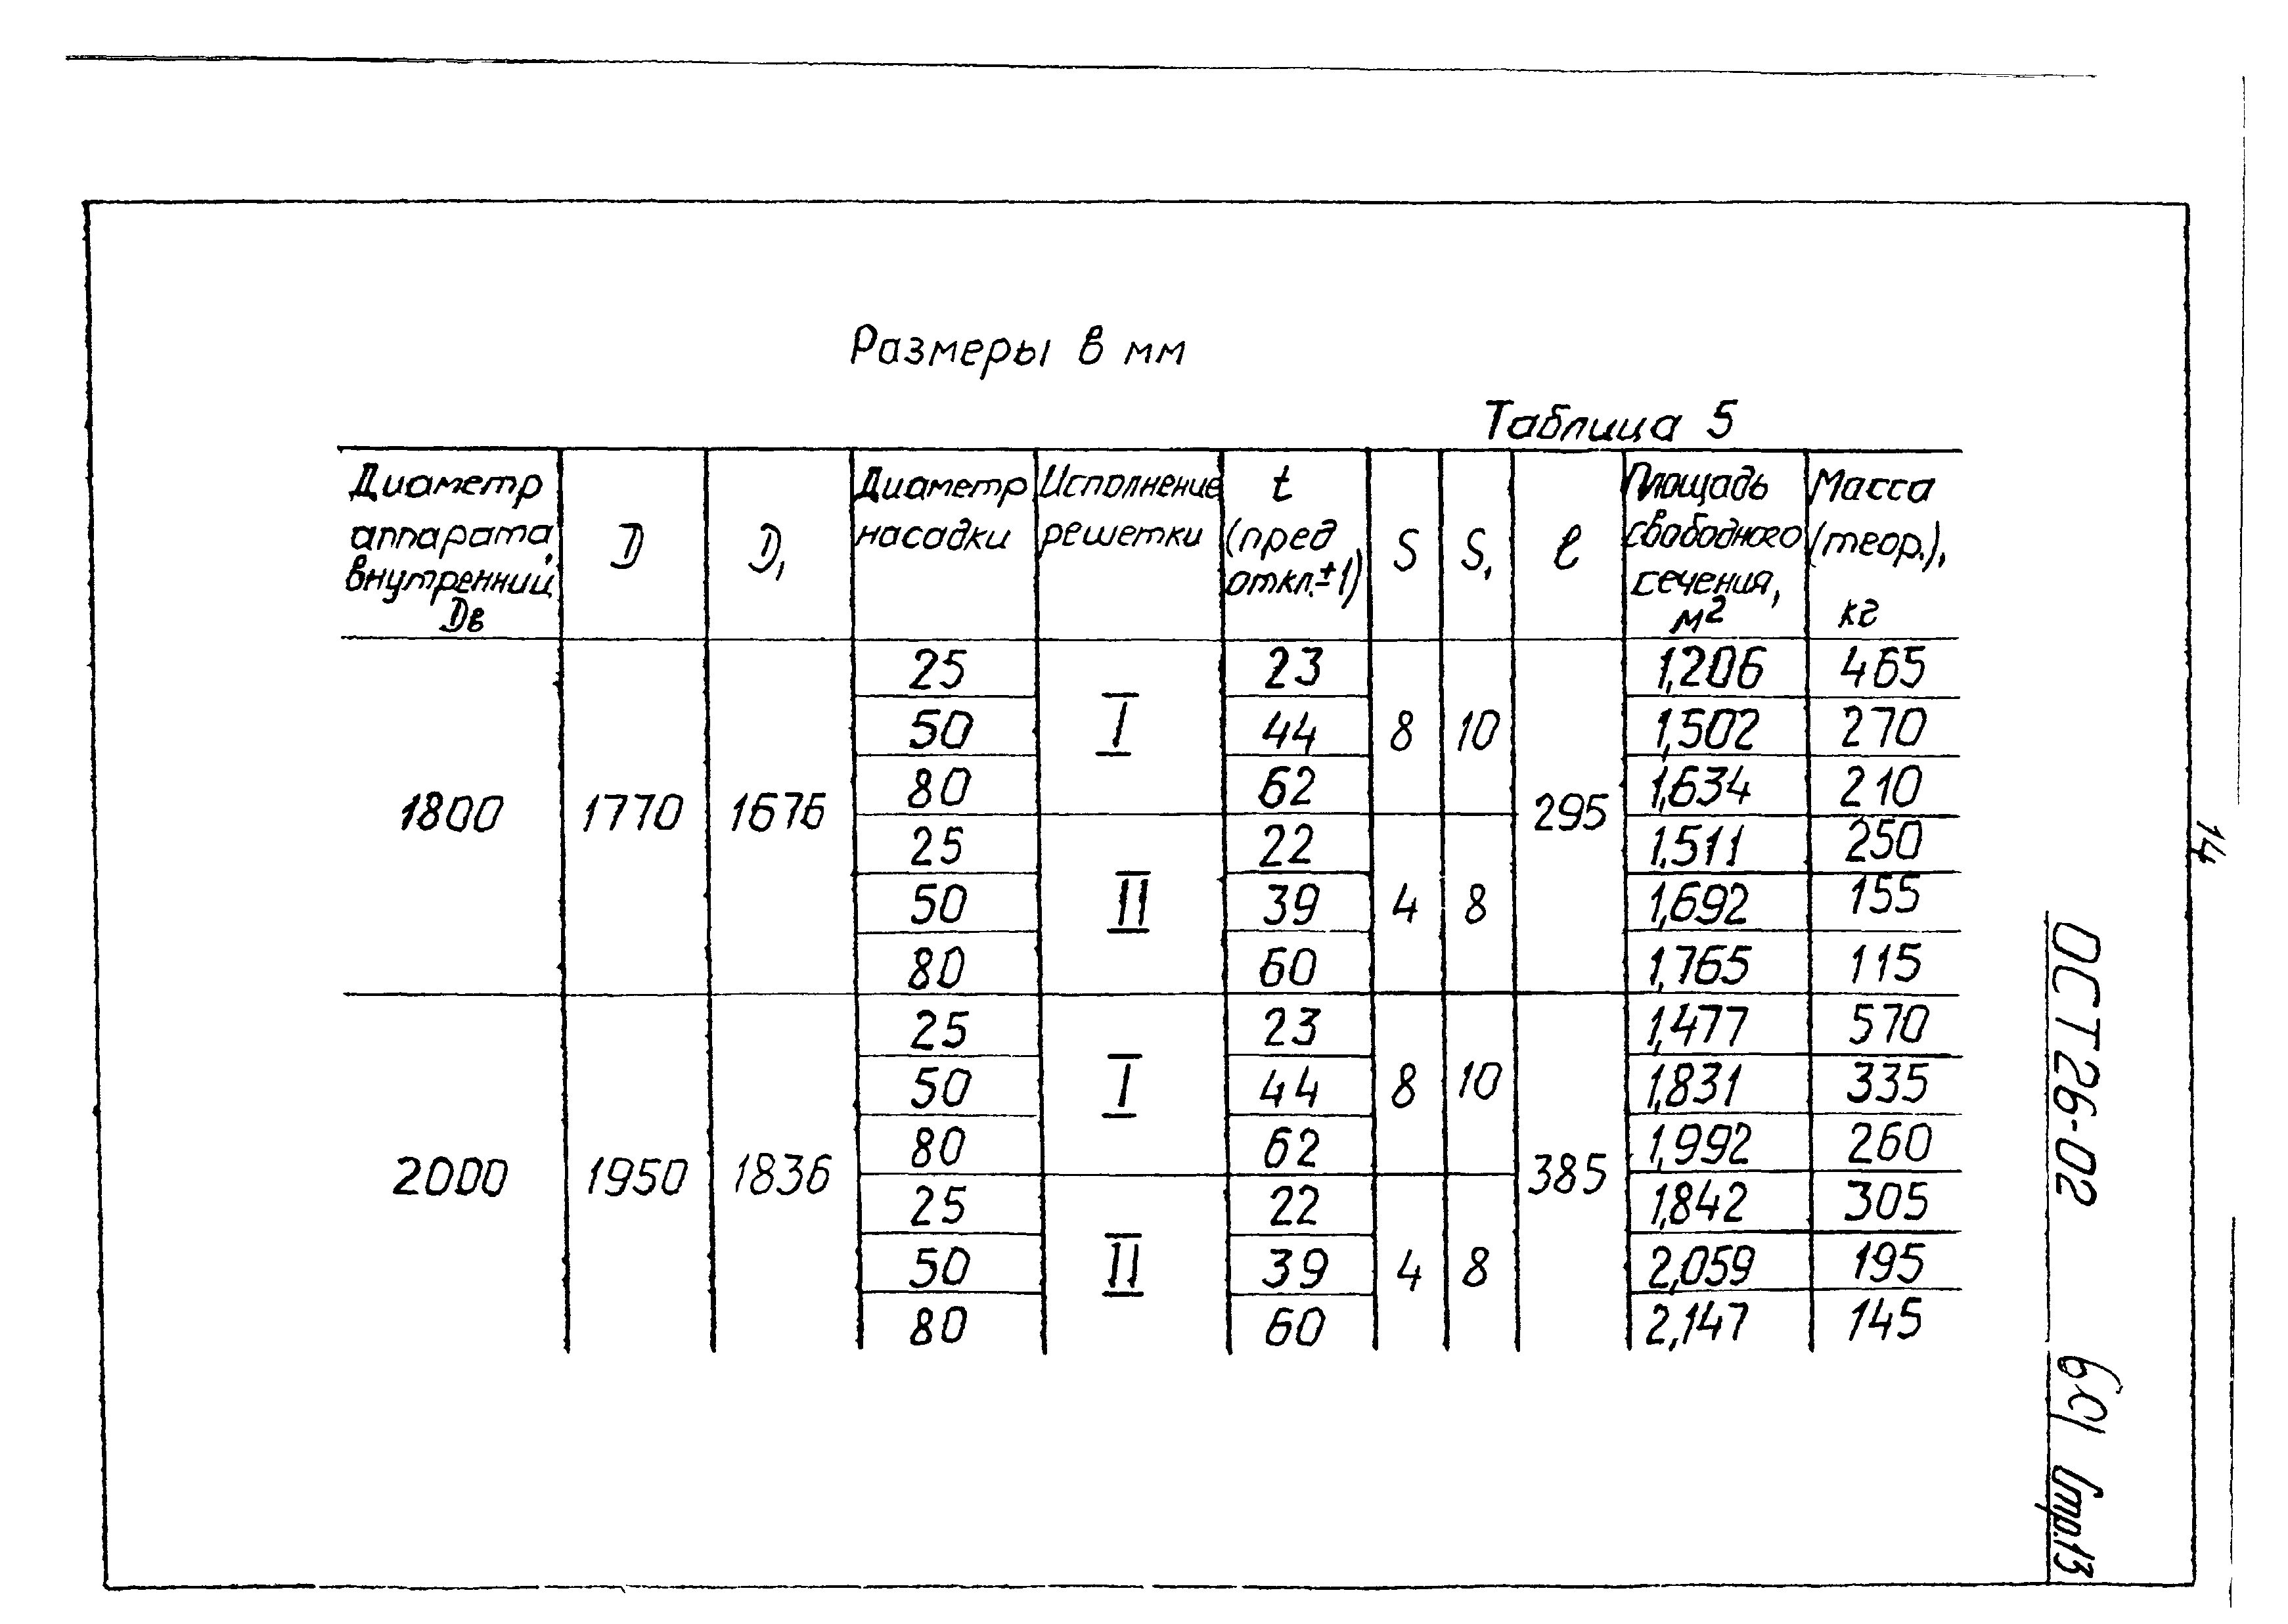 Размеры в мм
Таблица 5
Диаметр аппарата, внутренний, Dв | D | D₁ | Диаметр насадки | Исполнение решетки | t (пред откл. ±1) | S | S₁ | ℓ | Площадь свободного сечения, м² | Масса (теор.), кг
1800 | 1770 | 1676 | 25 | I | 23 | 8 | 10 | 295 | 1,206 | 465
50 | 44 | 1,502 | 270
80 | 62 | 1,634 | 210
25 | II | 22 | 4 | 8 | 1,511 | 250
50 | 39 | 1,692 | 155
80 | 60 | 1,765 | 115
2000 | 1950 | 1836 | 25 | I | 23 | 8 | 10 | 385 | 1,477 | 570
50 | 44 | 1,831 | 335
80 | 62 | 1,992 | 260
25 | II | 22 | 4 | 8 | 1,842 | 305
50 | 39 | 2,059 | 195
80 | 60 | 2,147 | 145
14
ОСТ 26-02
Стр.13